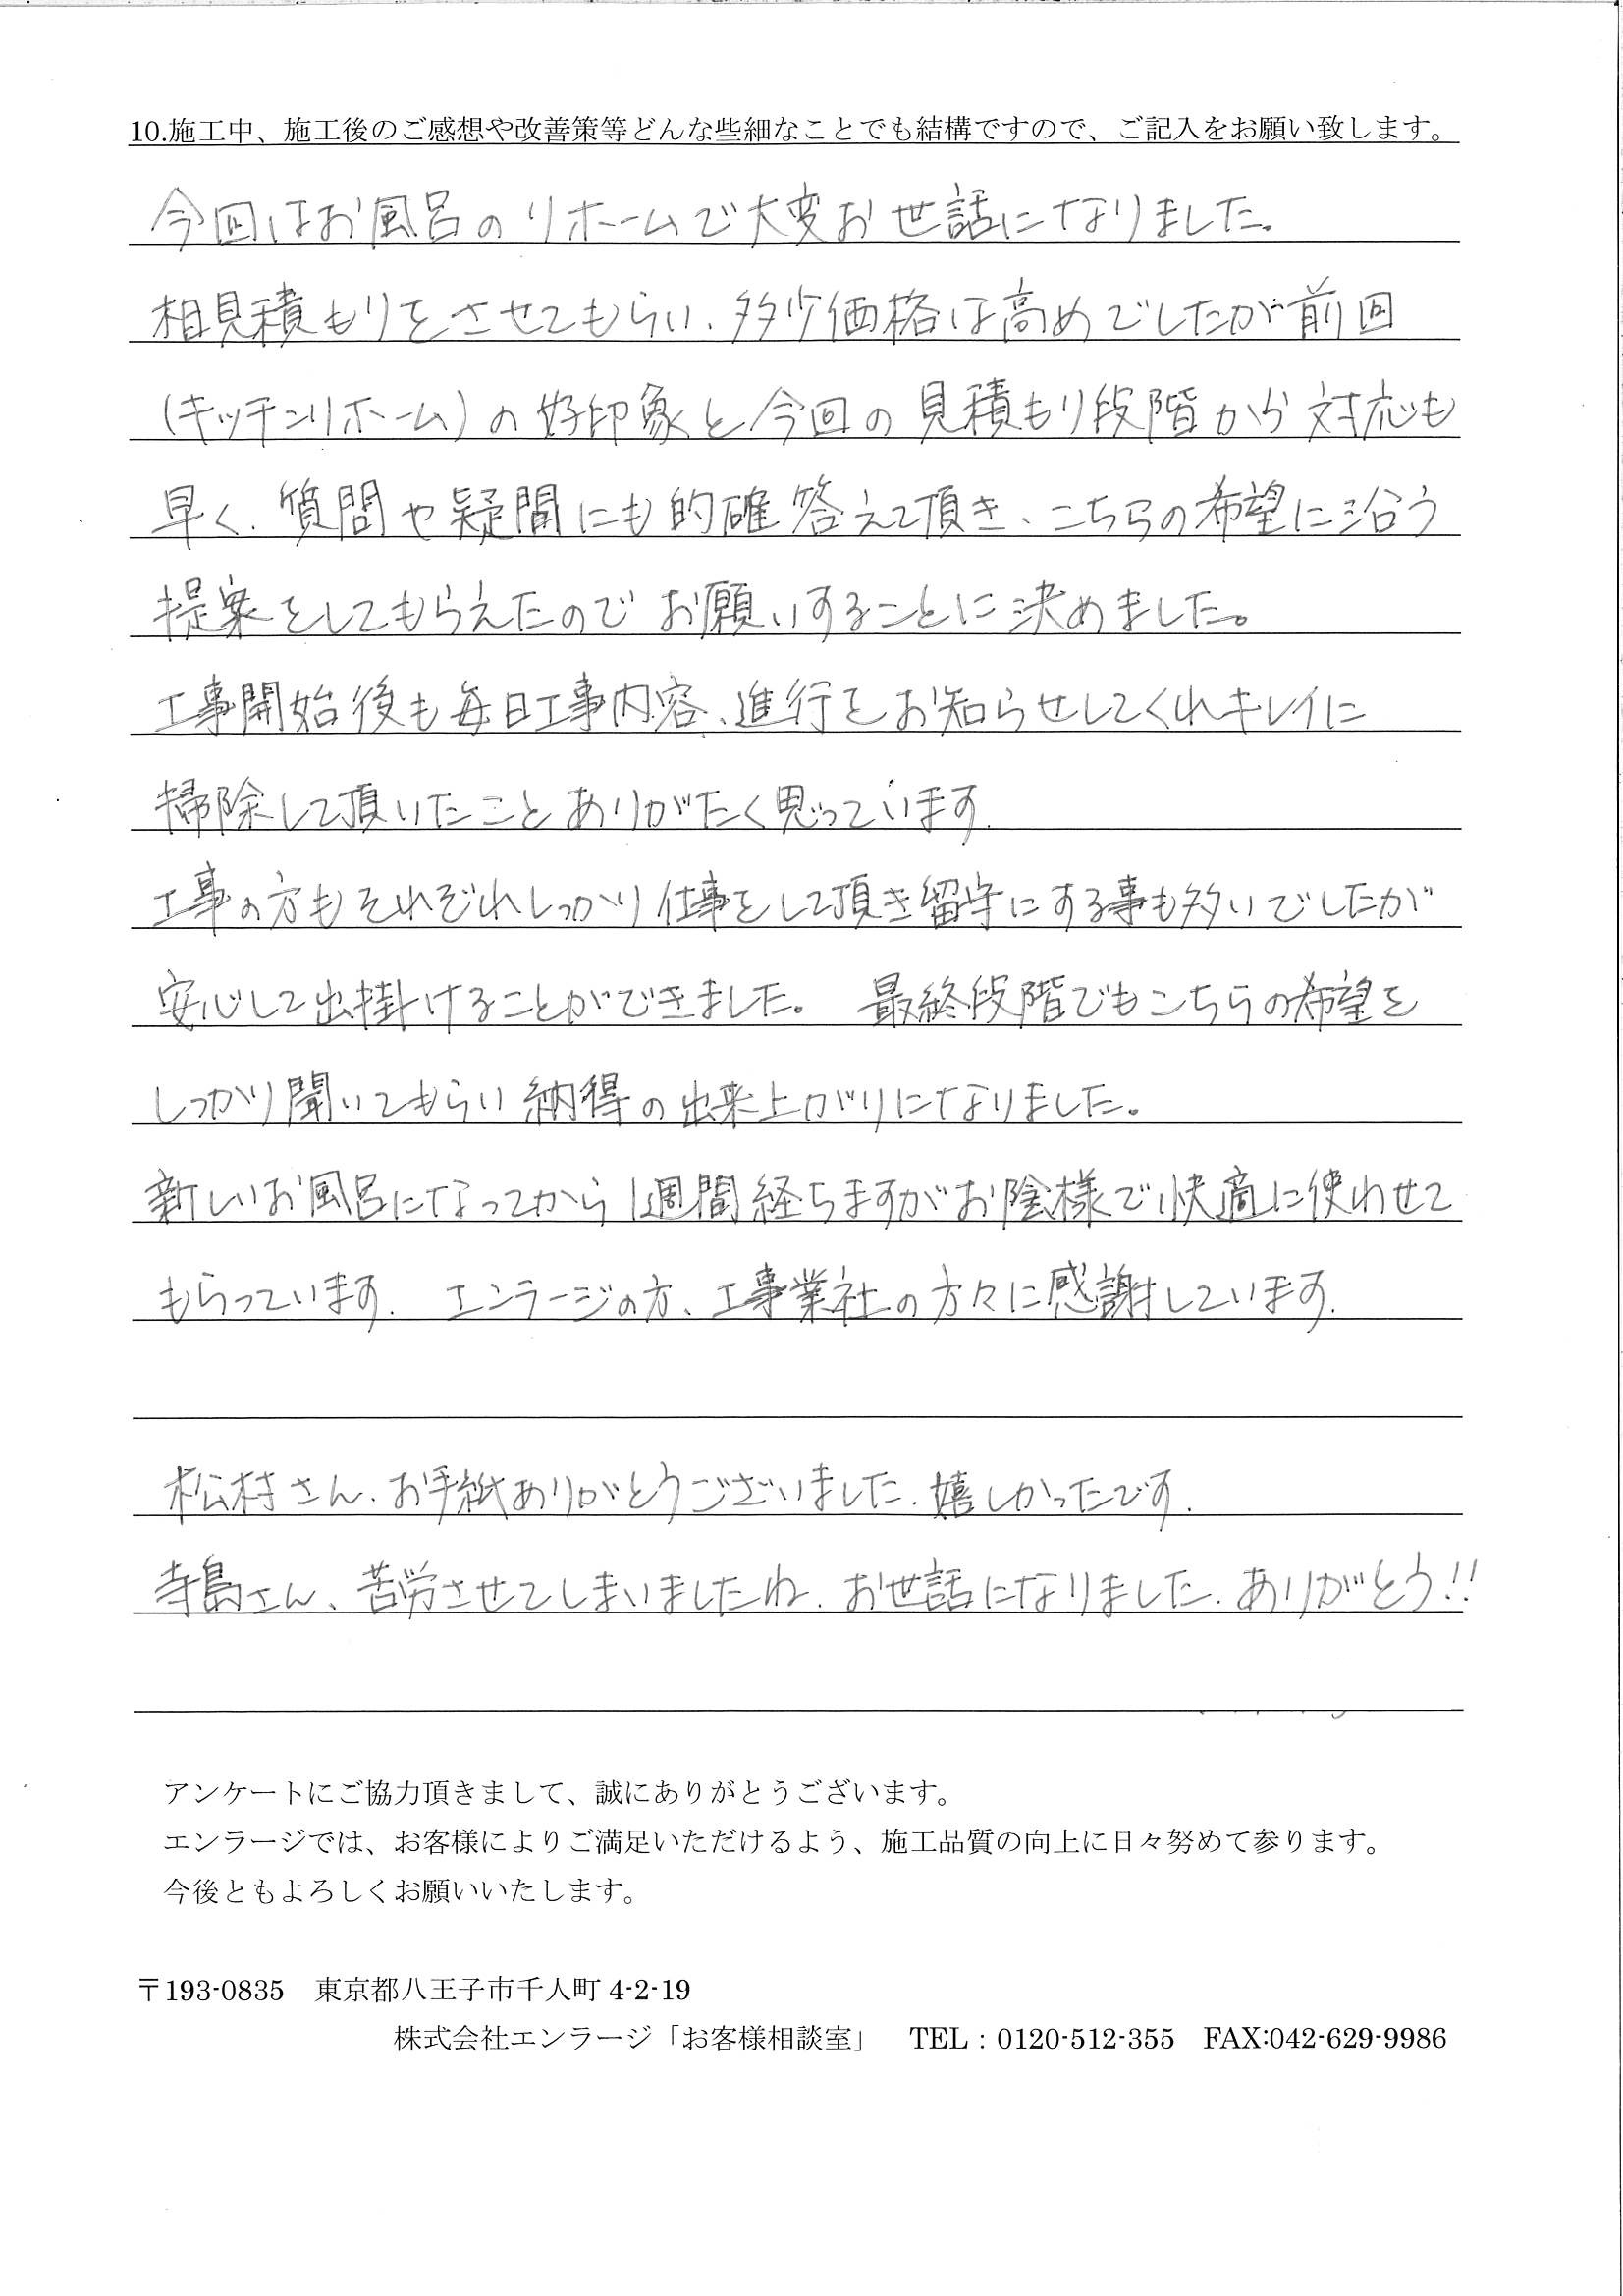 10.施工中、施工後のご感想や改善策等どんな些細なことでも結構ですので、ご記入をお願い致します。
今回はお風呂のリホームで大変お世話になりました。
相見積もりをさせてもらい、多少価格は高めでしたが前回
(キッチンリホーム)の好印象と今回の見積もり段階から対応も
早く、質問や疑問にも的確答えて頂き、こちらの希望に沿う
提案をしてもらえたのでお願いすることに決めました。
工事開始後も毎日工事内容、進行をお知らせしてくれキレイに
掃除して頂いたことありがたく思っています.
工事の方もそれぞれしっかり仕事をして頂き留守にする事も多いでしたが
安心して出掛けることができました。 最終段階でもこちらの希望を
しっかり聞いてもらい納得の出来上がりになりました。
新しいお風呂になってから1週間経ちますがお陰様で快適に使わせて
もらっています. エンラージの方、工事業社の方々に感謝しています.
松村さん、お手紙ありがとうございました.嬉しかったです.
寺島さん、苦労させてしまいましたね.お世話になりました.ありがとう!!
アンケートにご協力頂きまして、誠にありがとうございます。
エンラージでは、お客様によりご満足いただけるよう、施工品質の向上に日々努めて参ります。
今後ともよろしくお願いいたします。
〒193-0835 東京都八王子市千人町 4-2-19
株式会社エンラージ「お客様相談室」 TEL:0120-512-355 FAX:042-629-9986